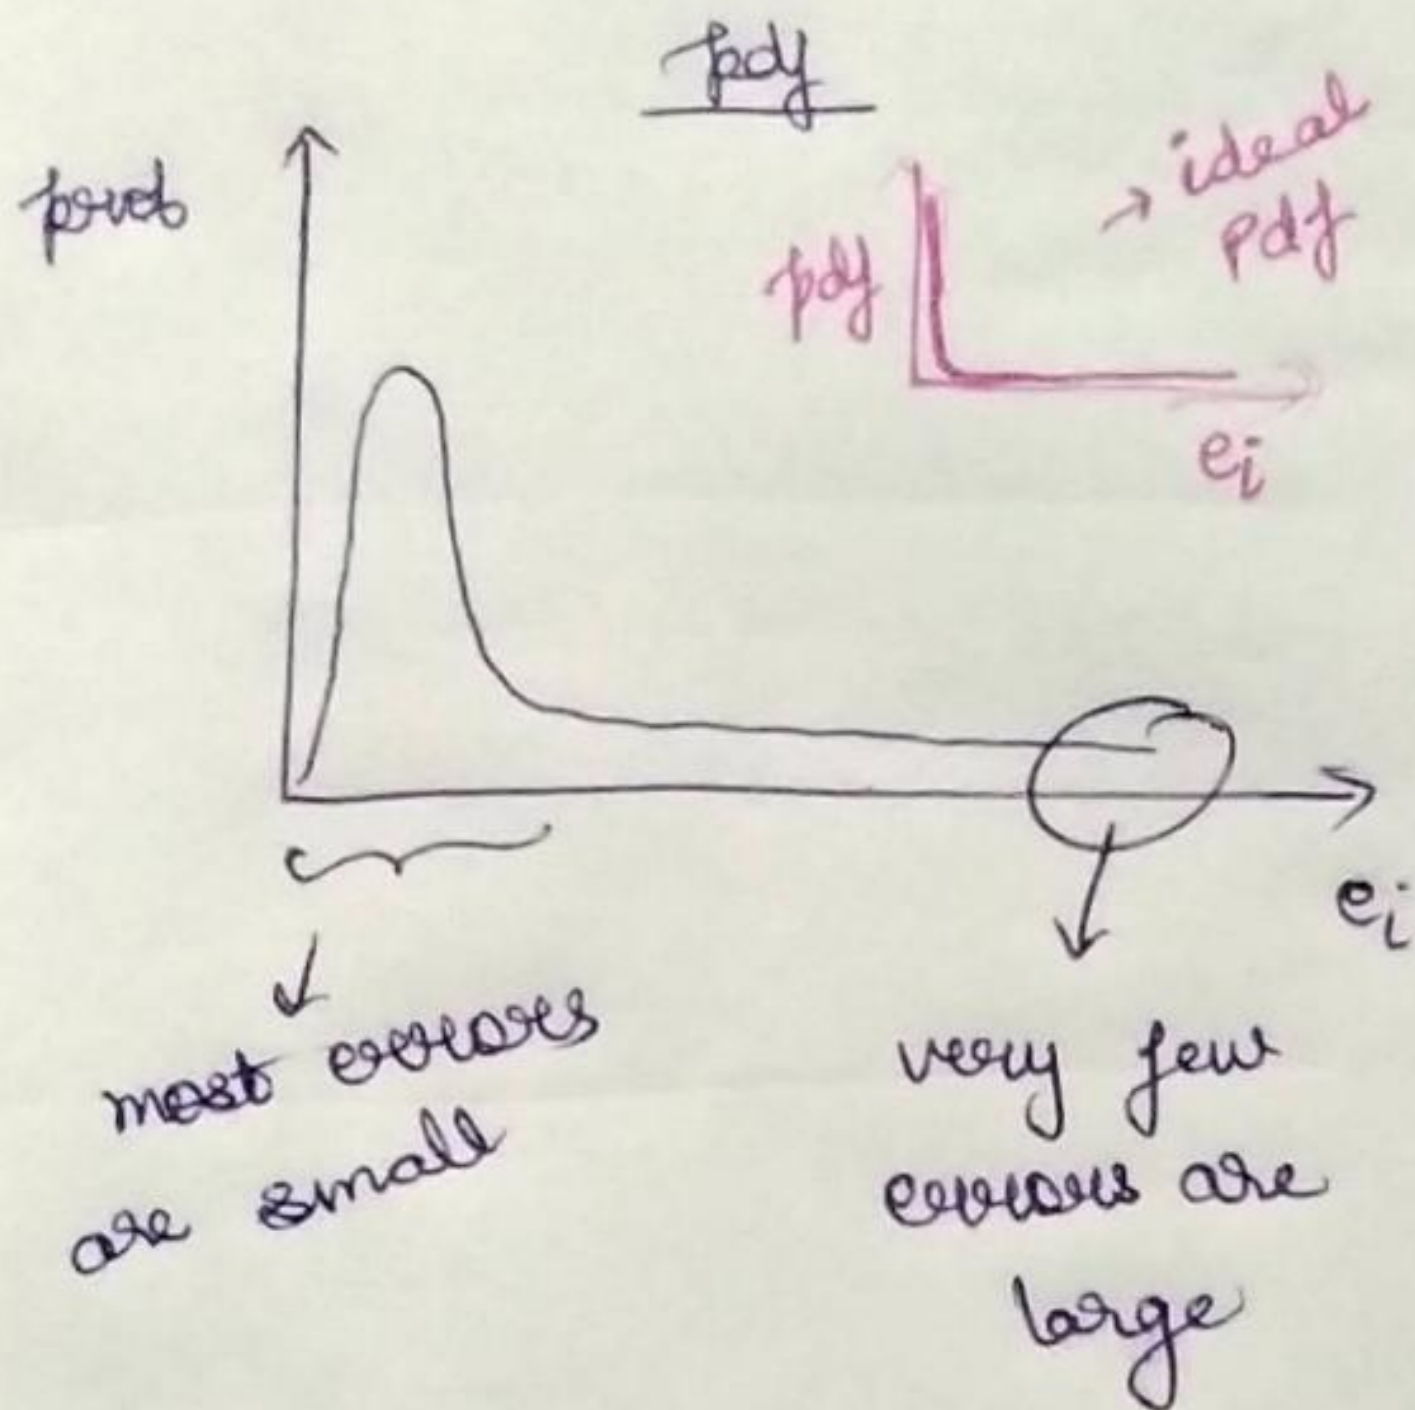 pdf
prob
→ ideal
pdf
pdf
ei
ei
most errors
are small
very few
errors are
large